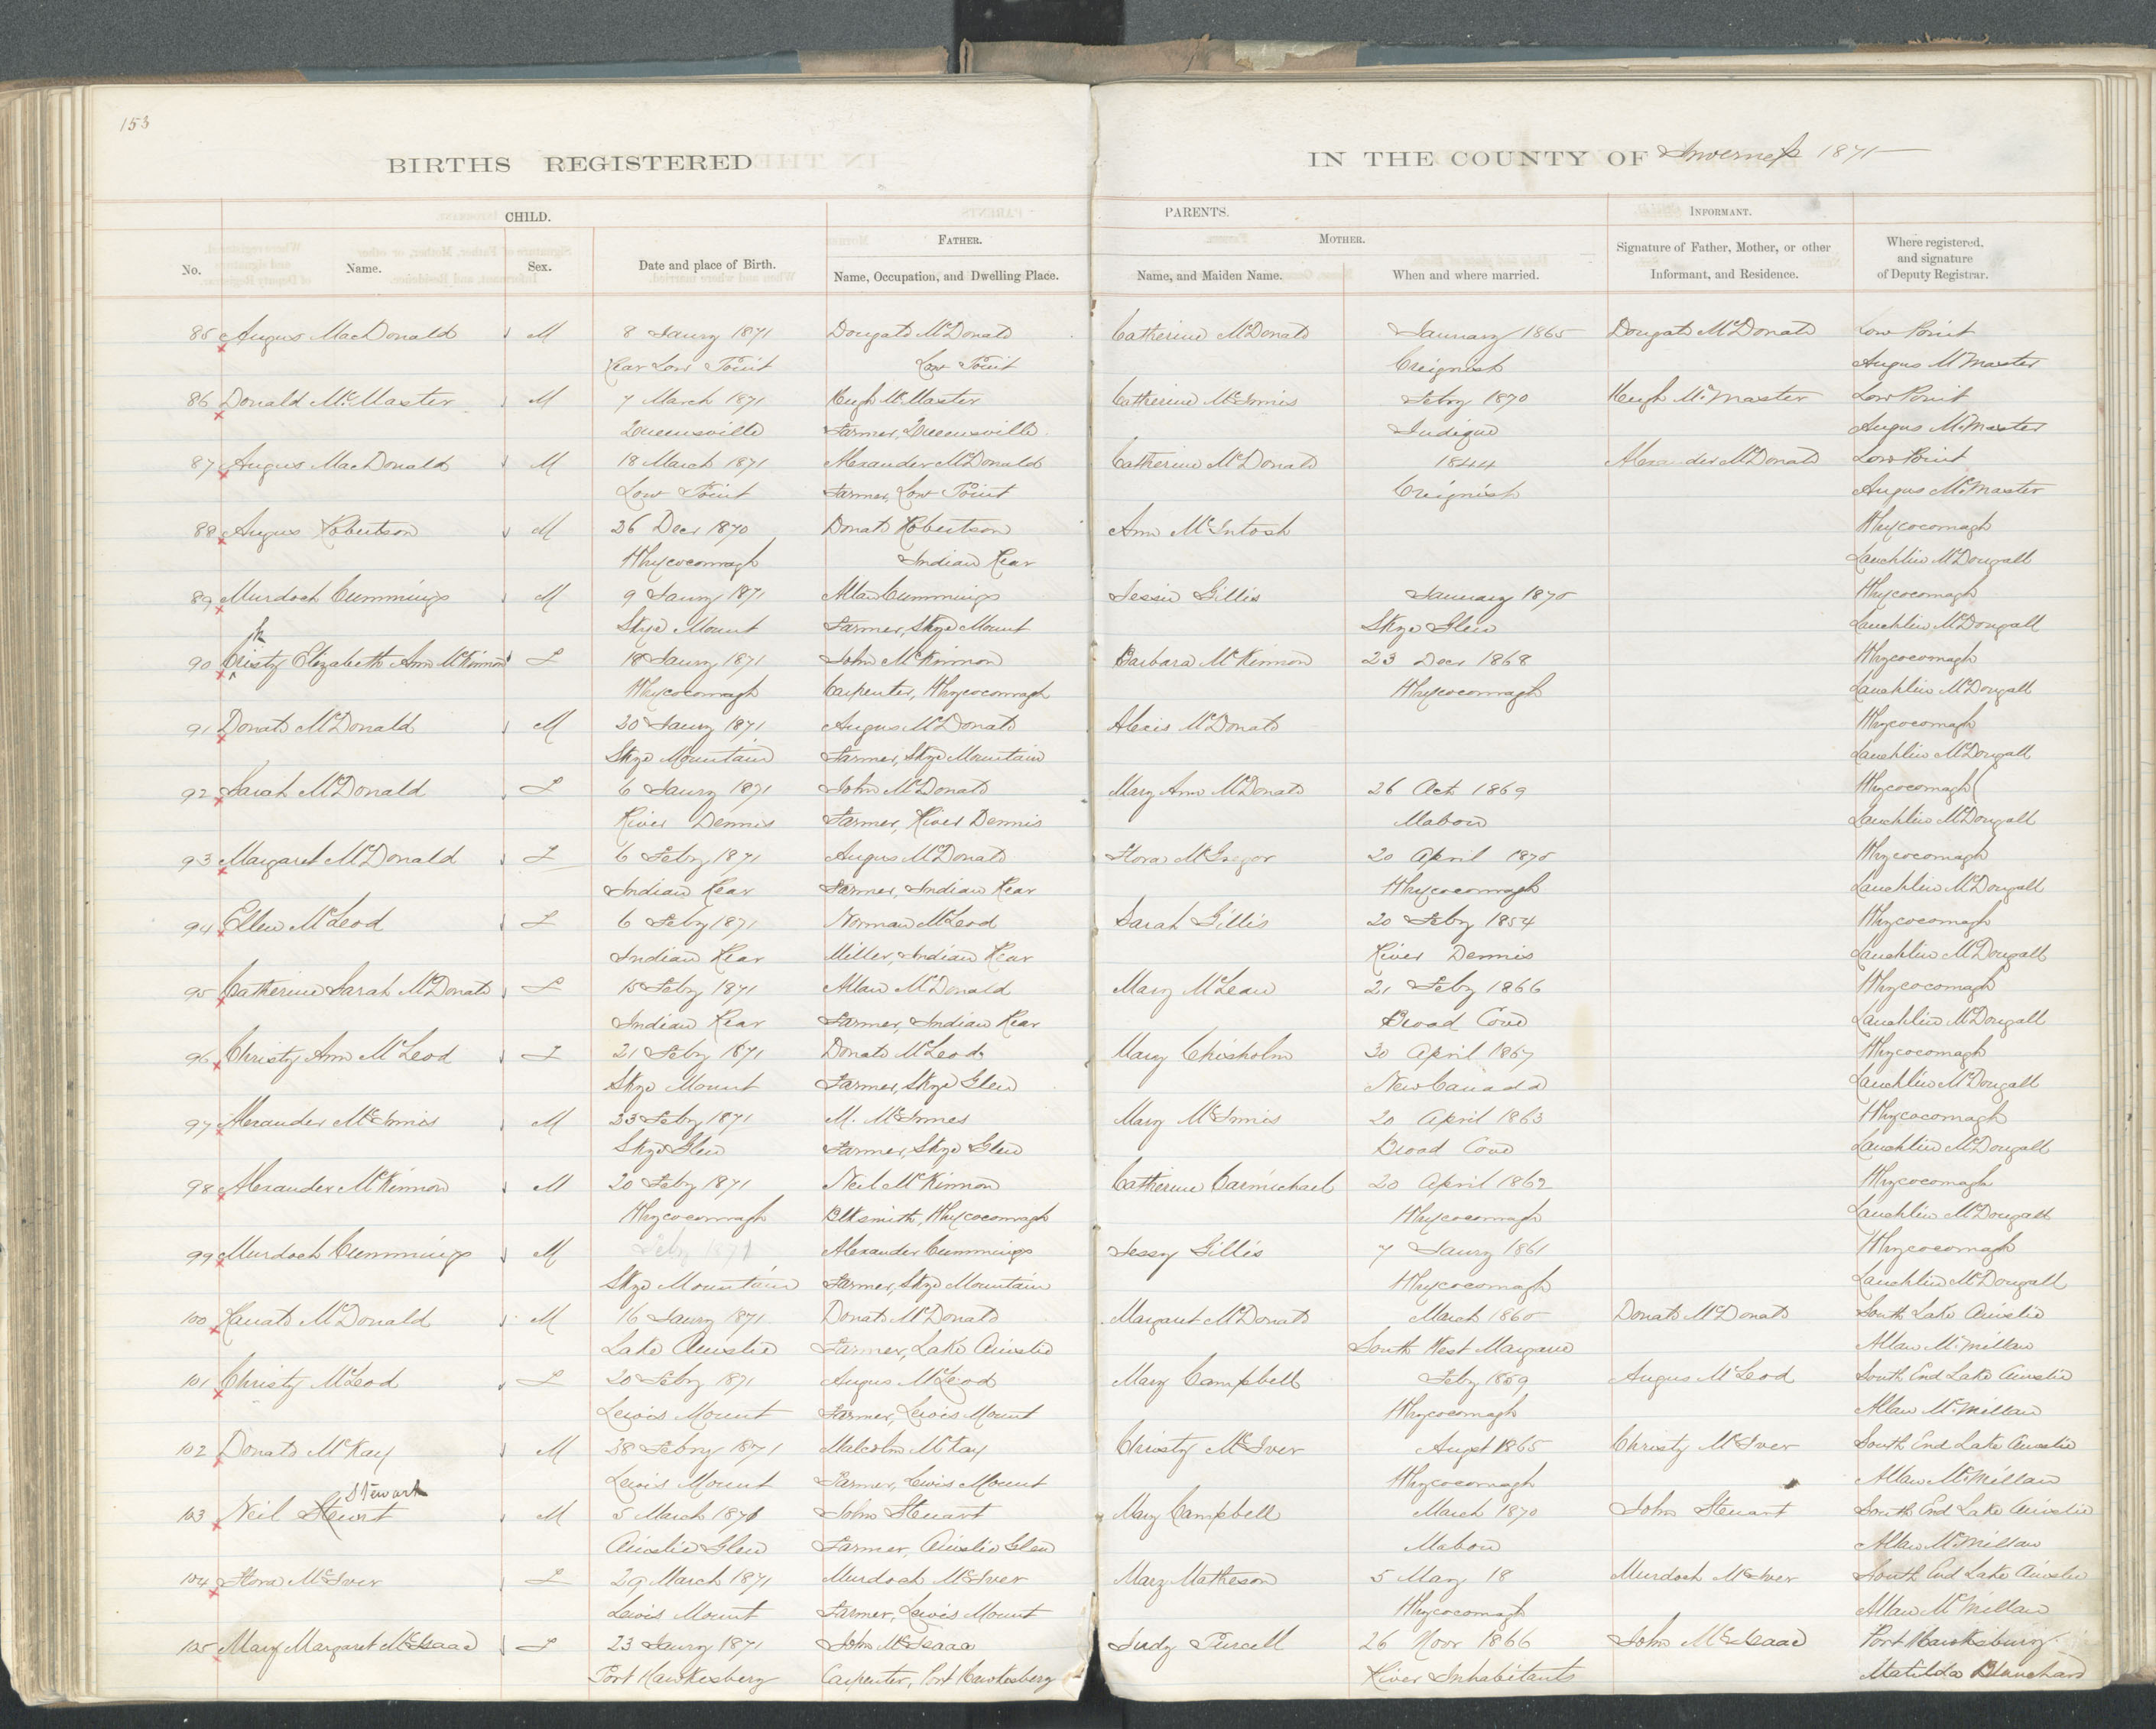 153
BIRTHS REGISTERED IN THE COUNTY OF Inverness 1871
CHILD. PARENTS. INFORMANT.
FATHER. MOTHER.
No. Name. Sex. Date and place of Birth. Name, Occupation, and Dwelling Place. Name, and Maiden Name. When and where married. Signature of Father, Mother, or other Informant, and Residence. Where registered, and signature of Deputy Registrar.
85 Angus MacDonald M 8 Jaury 1871 Dougald McDonald Catherine McDonald January 1865 Dougald McDonald Low Point
Rear Low Point Low Point Creignish Angus McMaster
86 Donald McMaster M 7 March 1871 Hugh McMaster Catherine McInnis Feby 1870 Hugh McMaster Low Point
Queensville Farmer, Queensville Judique Angus McMaster
87 Angus MacDonald M 18 March 1871 Alexander McDonald Catherine McDonald 1844 Alexander McDonald Low Point
Low Point Farmer, Low Point Creignish Angus McMaster
88 Angus Robertson M 26 Decr 1870 Donald Robertson Ann McIntosh Whycocomagh
Whycocomagh Indian Rear Lauchlin McDougall
89 Murdoch Cummings M 9 Jaury 1871 Allan Cummings Jessie Gillis January 1870 Whycocomagh
Skye Mount Farmer, Skye Mount Skye Glen Lauchlin McDougall
90 Christy Elizabeth Ann McKinnon F 18 Jaury 1871 John McKinnon Barbara McKinnon 23 Decr 1868 Whycocomagh
Whycocomagh Carpenter, Whycocomagh Whycocomagh Lauchlin McDougall
91 Donald McDonald M 20 Jaury 1871 Angus McDonald Alexis McDonald Whycocomagh
Skye Mountain Farmer, Skye Mountain Lauchlin McDougall
92 Sarah McDonald F 6 Jaury 1871 John McDonald Mary Ann McDonald 26 Oct 1869 Whycocomagh
River Dennis Farmer, River Dennis Mabou Lauchlin McDougall
93 Margaret McDonald F 6 Feby 1871 Angus McDonald Flora McGregor 20 April 1870 Whycocomagh
Indian Rear Farmer, Indian Rear Whycocomagh Lauchlin McDougall
94 Ellen McLeod F 6 Feby 1871 Norman McLeod Sarah Gillis 20 Feby 1854 Whycocomagh
Indian Rear Miller, Indian Rear River Dennis Lauchlin McDougall
95 Catherine Sarah McDonald F 15 Feby 1871 Allan McDonald Mary McLean 21 Feby 1866 Whycocomagh
Indian Rear Farmer, Indian Rear Broad Cove Lauchlin McDougall
96 Christy Ann McLeod F 21 Feby 1871 Donald McLeod Mary Chisholm 30 April 1867 Whycocomagh
Skye Mount Farmer, Skye Glen New Canada Lauchlin McDougall
97 Alexander McInnis M 23 Feby 1871 M. McInnes Mary McInnis 20 April 1863 Whycocomagh
Skye Glen Farmer, Skye Glen Broad Cove Lauchlin McDougall
98 Alexander McKinnon M 20 Feby 1871 Neil McKinnon Catherine Carmichael 20 April 1862 Whycocomagh
Whycocomagh Blksmith, Whycocomagh Whycocomagh Lauchlin McDougall
99 Murdoch Cummings M Feby 1871 Alexander Cummings Jessy Gillis 7 Jaury 1861 Whycocomagh
Skye Mountain Farmer, Skye Mountain Whycocomagh Lauchlin McDougall
100 Ranald McDonald M 16 Jaury 1871 Donald McDonald Margaret McDonald March 1860 Donald McDonald South Lake Ainslie
Lake Ainslie Farmer, Lake Ainslie South West Margaree Allan McMillan
101 Christy McLeod F 20 Feby 1871 Angus McLeod Mary Campbell Feby 1859 Angus McLeod South End Lake Ainslie
Lewis Mount Farmer, Lewis Mount Whycocomagh Allan McMillan
102 Donald McKay M 28 Febry 1871 Malcolm McKay Christy McIver Augst 1865 Christy McIver South End Lake Ainslie
Lewis Mount Farmer, Lewis Mount Whycocomagh Allan McMillan
Stewart
103 Neil Stewart M 5 March 1871 John Steuart Mary Campbell March 1870 John Steuart South End Lake Ainslie
Ainslie Glen Farmer, Ainslie Glen Mabou Allan McMillan
104 Flora McIver F 29 March 1871 Murdoch McIver Mary Matheson 5 May 18 Murdoch McIver South End Lake Ainslie
Lewis Mount Farmer, Lewis Mount Whycocomagh Allan McMillan
105 Mary Margaret McIsaac F 23 Jaury 1871 John McIsaac Judy Purcell 26 Novr 1866 John McIsaac Port Hawksbury
Port Hawkesbery Carpenter, Port Hawkesbery River Inhabitants Matilda Blanchard